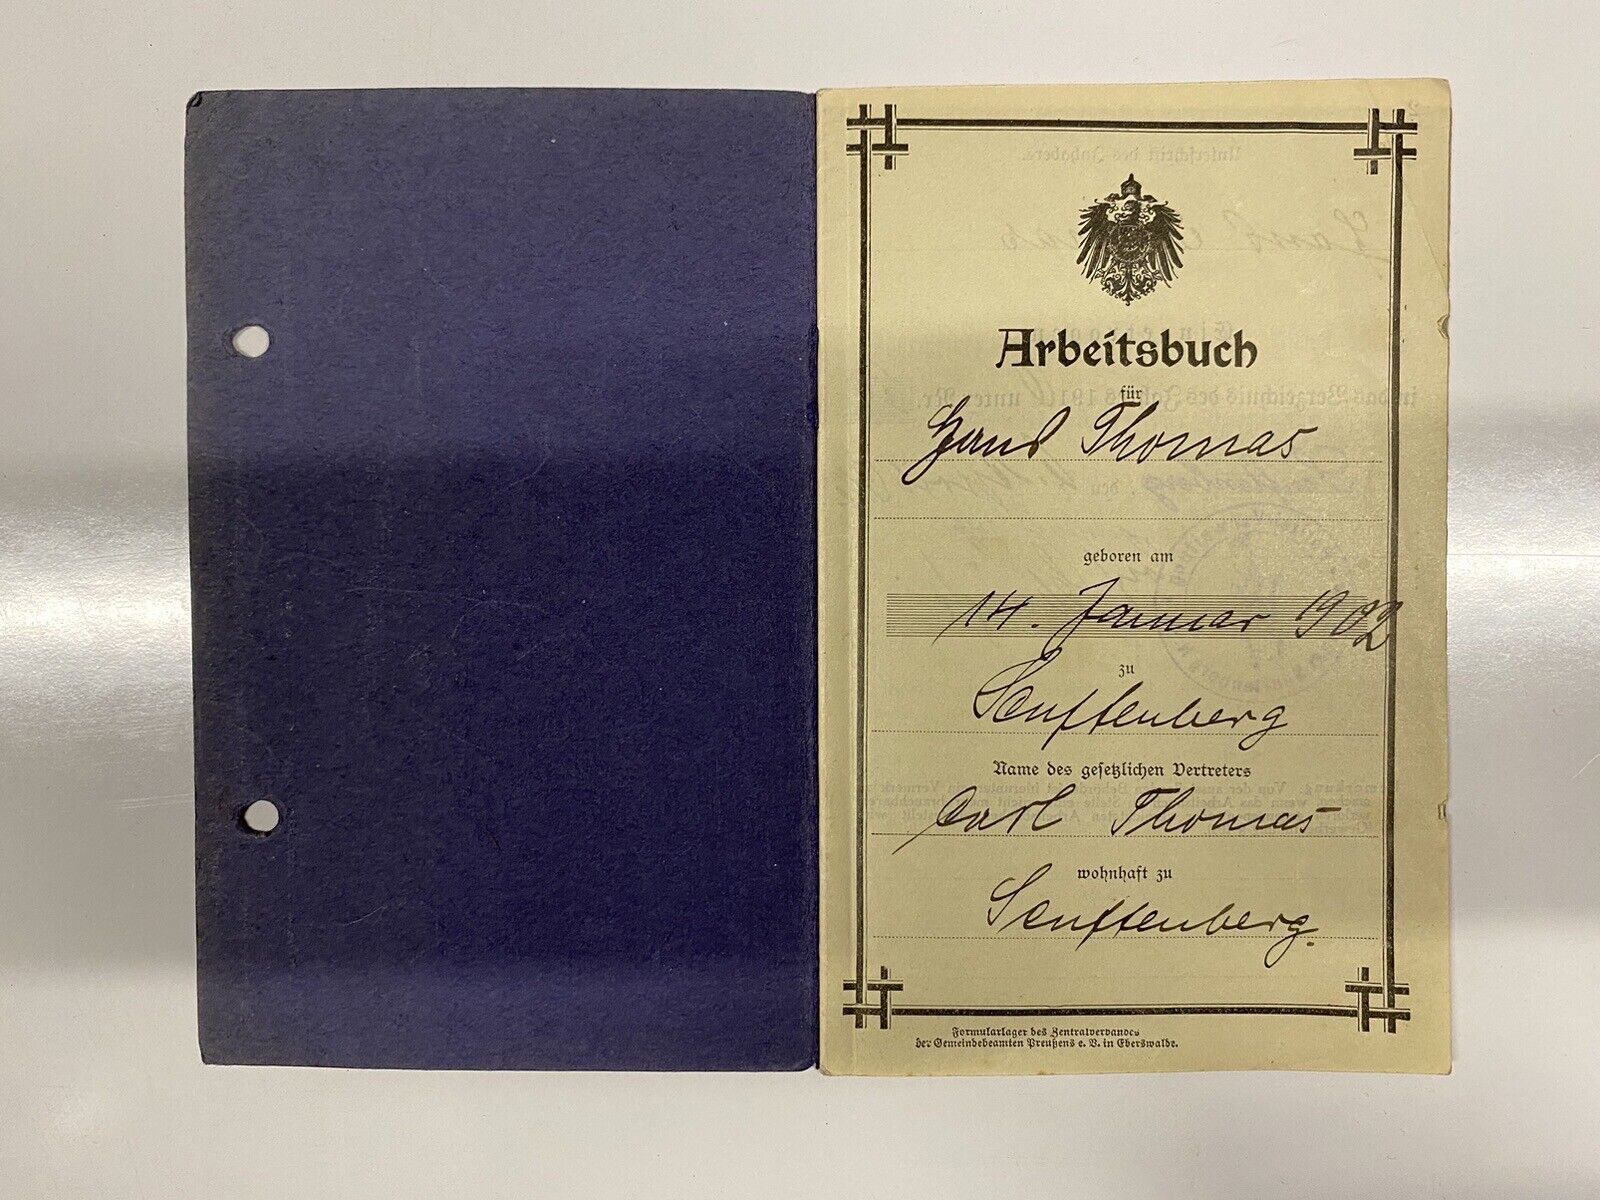 Arbeitsbuch
für
Hans Thomas
geboren am
14. Januar 1902
zu
Senftenberg
Name des gesetzlichen Vertreters
Carl Thomas
wohnhaft zu
Senftenberg.
Formularlager des Zentralverbandes
der Gemeindebeamten Preußens e. V. in Eberswalde.